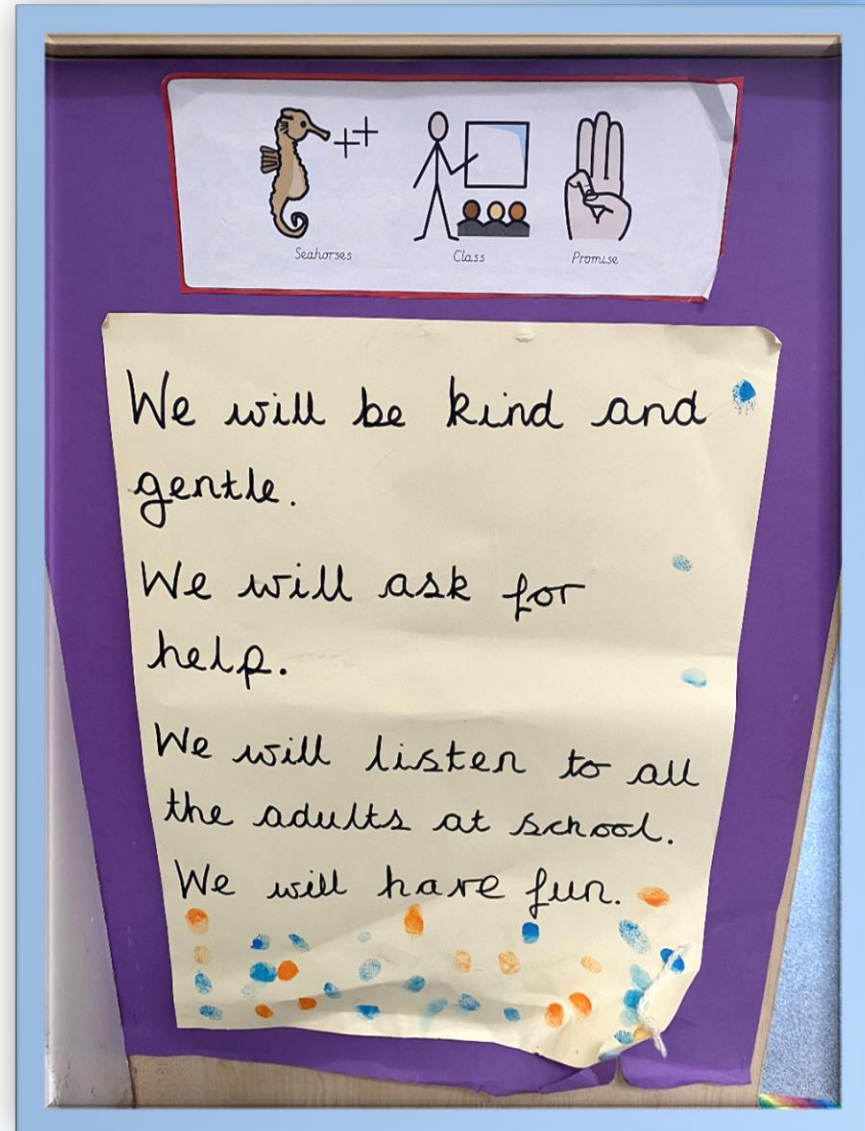 Seahorses Class Promise
We will be kind and
gentle.
We will ask for
help.
We will listen to all
the adults at school.
We will have fun.